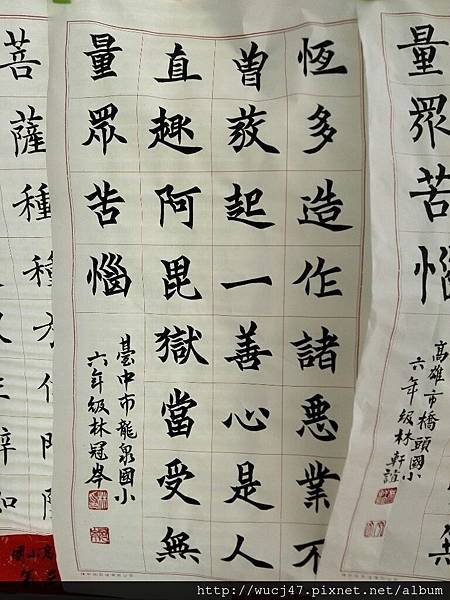 量眾苦惱
高雄市橋頭國小
六年級林軒誼
恆多造作諸惡業不
曾發起一善心是人
直趣阿毘獄當受無
量眾苦惱
臺中市龍泉國小
六年級林冠岑
菩薩種種
http://wucj47.pixnet.net/album